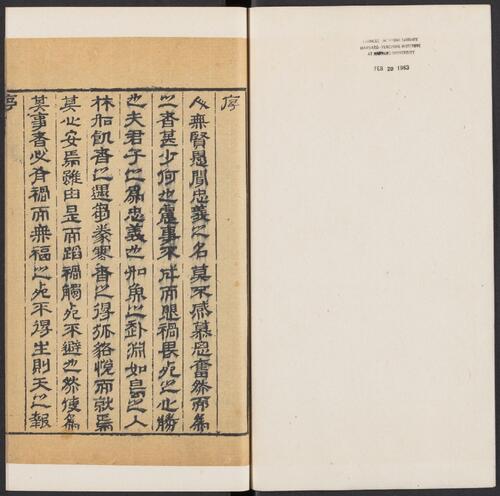 序
人無賢愚聞忠義之名莫不感慕思奮然而為
之者甚少何也慮事不成而退禍畏死之心勝
也夫君子之為忠義也如魚之赴淵如鳥之入
林如飢者之遇芻豢寒者之得狐貉悅而就焉
莫之安焉雖由是而蹈禍觸死不避也然使為
其事者必有禍而無福之死不得生則天之報
序
CHINESE-JAPANESE LIBRARY
HARVARD-YENCHING INSTITUTE
AT HARVARD UNIVERSITY
FEB 20 1963